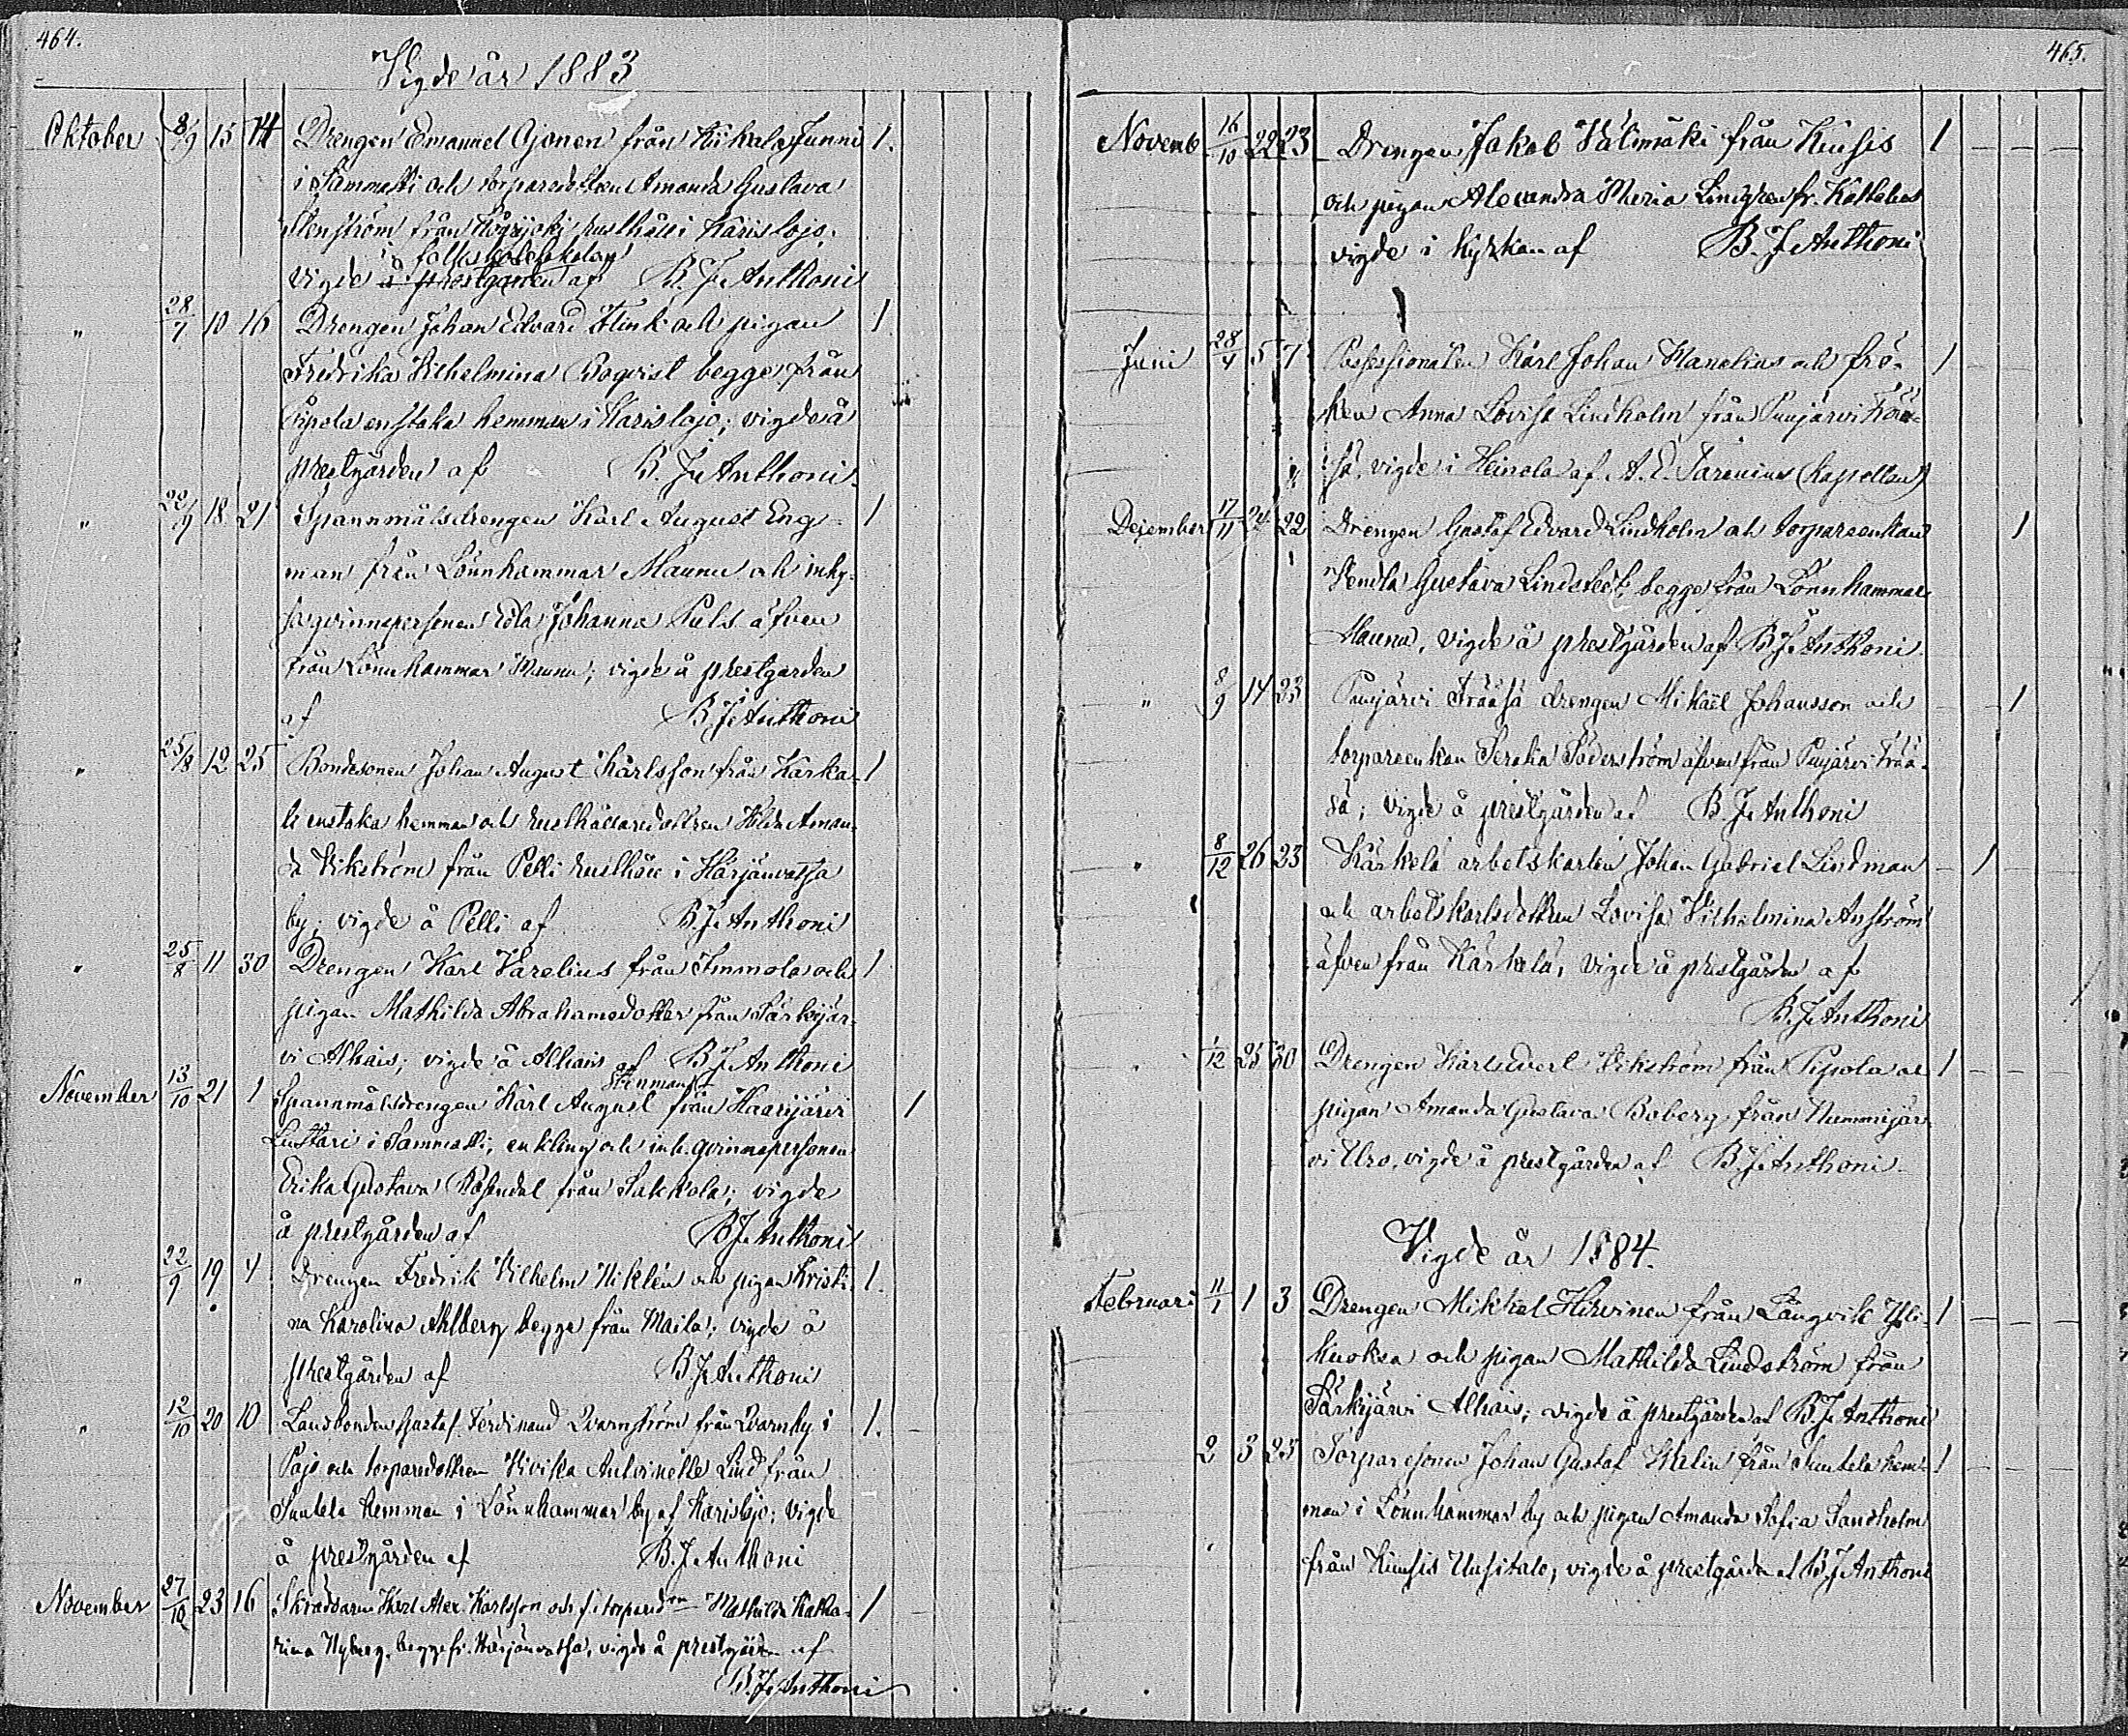 464.
Vigde år 1883
Oktober 8/9 15 14 Drengen Emanuel Gjonen från Kiikala Junni 1.
i Sammatti och torparedottren Amanda Gustava
Stenström från rusthåll i Karislojo,
i folkskolelokalen
vigde å prestgården af B. J. Anthoni
" 28/7 10 16 Drengen Johan Edvard Flink och pigan 1
Fredrika Vilhelmina Boqvist begge från
Pipola enstaka hemman i Karislojo; vigde å
prestgården af B. J. Anthoni.
" 22/9 18 21 Spannmålsdrengen Karl August Eng= 1
man från Lönnhammar Maunu och inhy=
sesqvinnspersonen Edla Johanna Puls äfven
från Lönnhammar Maunu; vigde å prestgården
af B. J. Anthoni
" 25/8 12 25 Bondesonen Johan August Karlsson från Karka= 1
li enstaka hemman och rusthållaredottren Hilda Aman=
da Vikström från Pelli rusthåll i Härjänvatsa
by; vigde å Pelli af B. J. Anthoni
" 25/8 11 30 Drengen Karl Varelius från Immola och 1
pigan Mathilda Abrahamsdotter från Särkijär=
vi Alhais; vigde å Alhais af B. J. Anthoni
Stenman
November 13/10 21 1 Spannmålsdrengen Karl August från Haarijärvi 1
Lustari i Sammatti, enkling och inh. qvinnspersonen
Erika Gustava Rosendal från Sakkola; vigde
å prestgården af B. J. Anthoni
" 22/9 19 4 Drengen Fredrik Vilhelm Niklén och pigan Kristi= 1.
na Karolina Ahlberg begge från Maila; vigde å
prestgården af B. J. Anthoni
" 12/10 20 10 Landbonden Gustaf Ferdinand Qvarnström från Qvarnby i 1.
Pojo och torparedottren Vivika Antoinette Lind från
Suutela hemman i Lönnhammar by af Karislojo; vigde
å prestgården af B. J. Anthoni
November 27/10 23 16 Skräddaren Karl Alex Karlsson och f. torpared:en Mathilda Katha= 1
rina Nyberg, begge fr. Härjänvatsa, vigde å prestgården af
B. J. Anthoni
465.
Novemb 16/10 22 23 Drengen Jakob Välimäki från Kiusis 1
och pigan Alexandra Maria Lindgren fr.
vigde i kyrkan af B. J. Anthoni
Juni 28/4 5 7 Possessionaten Karl Johan Wanelius och frö= 1
ken Anna Lovisa Lindholm från Puujärvi Fröö=
så, vigde i Heinola af A. E. Sarenius (kapellan)
December 17/11 24 22 Drengen Gustaf Edvard Lindholm och torpareenkan 1
Vendla Gustava Lindstedt, begge från Lönnhammar
Maunu, vigde å prestgården af B. J. Anthoni
" 8/9 14 23 Puujärvi Frääsä drengen Mikaël Johansson och 1
torpareenkan Serafia Söderström äfven från Puujärvi Frää=
sä; vigde å prestgården af B. J. Anthoni
" 8/12 26 23 Kärkelä arbetskarlen Johan Gabriel Lindman 1
och arbetskarlsdottren Lovisa Vilhelmina Anström
äfven från Kärkelä, vigde å prestgården af
B. J. Anthoni
" 1/12 25 30 Drengen Karl Edvard Vikström från Pipola o. 1
pigan Amanda Gustava Boberg från Nummijär=
vi Uro, vigde å prestgården af B. J. Anthoni
Vigde år 1884.
Februari 11/1 1 3 Drengen Mikkel Hirvinen från Långvik Yli= 1
kuoksa och pigan Mathilda Lindström från
Särkijärvi Alhais; vigde å prestgården af B. J. Anthoni
2 3 25 Torparesonen Johan Gustaf Ekelin från Suutela hem= 1
man i Lönnhammar by och pigan Amanda Sofia Sandholm
från Kiusis Uusitalo, vigde å prestgården af B. J. Anthoni